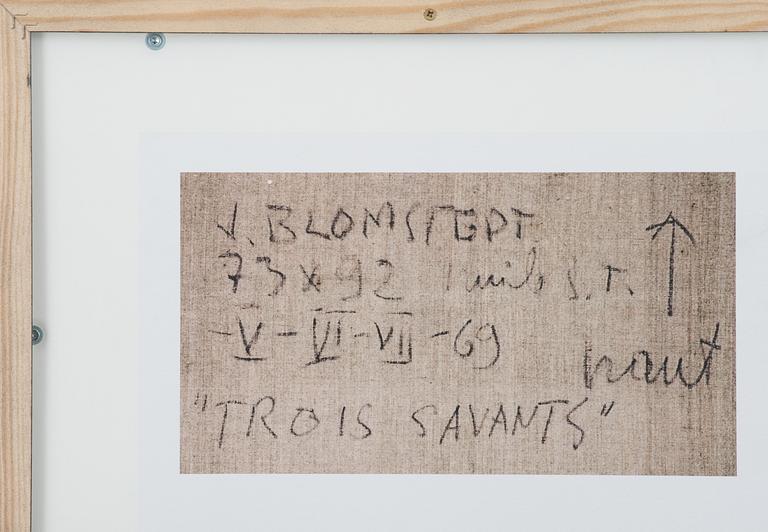 J. BLOMSTEDT
73 x 92 huile s.T.
-V-VI-VII-69
haut
"TROIS SAVANTS"